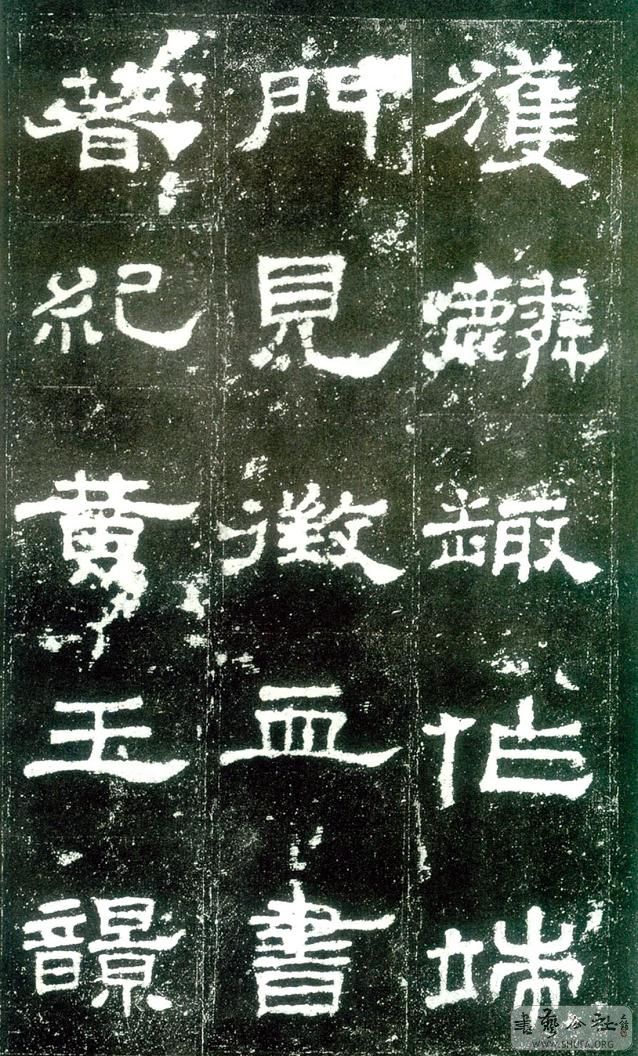 獲麟趣作端
門見徵血書
著紀黃玉響
書藝公社
WWW.SHUFA.ORG